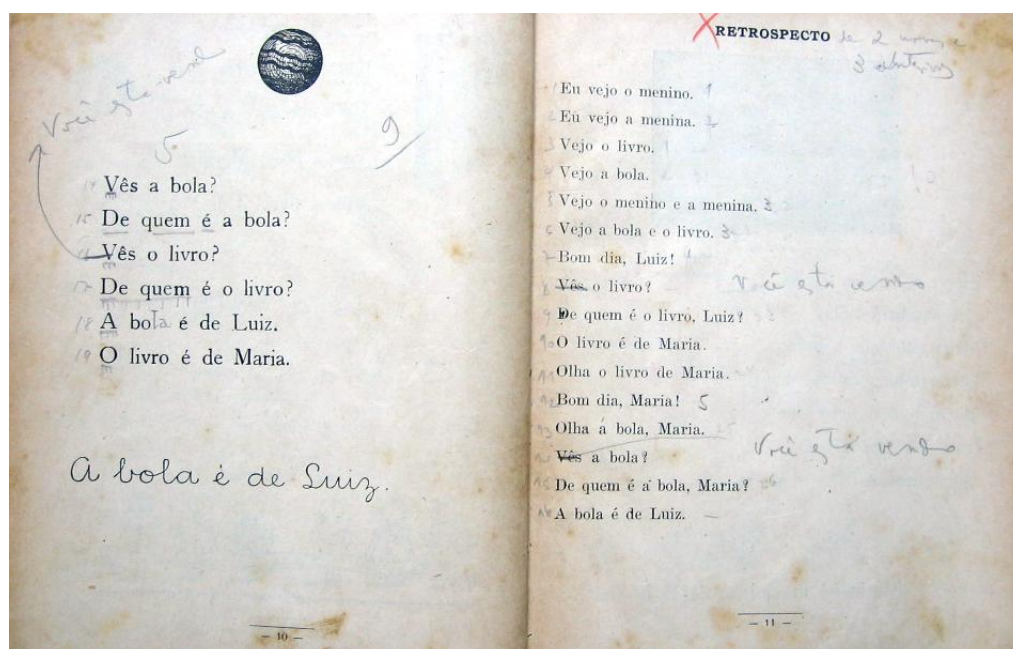 Você está vend
5
9
14 Vês a bola?
15 De quem é a bola?
16 Vês o livro?
17 De quem é o livro?
18 A bola é de Luiz.
19 O livro é de Maria.
A bola é de Luiz.
— 10 —
RETROSPECTO de 2
3
1 Eu vejo o menino. 1
2 Eu vejo a menina. 2
3 Vejo o livro. 1
4 Vejo a bola.
5 Vejo o menino e a menina. 3
6 Vejo a bola e o livro. 3
7 Bom dia, Luiz! 4
8 Vês o livro? Você está vendo
9 De quem é o livro, Luiz?
10 O livro é de Maria.
11 Olha o livro de Maria.
12 Bom dia, Maria! 5
13 Olha a bola, Maria.
Vês a bola? Você está vendo
15 De quem é a bola, Maria? 6
16 A bola é de Luiz.
10
— 11 —